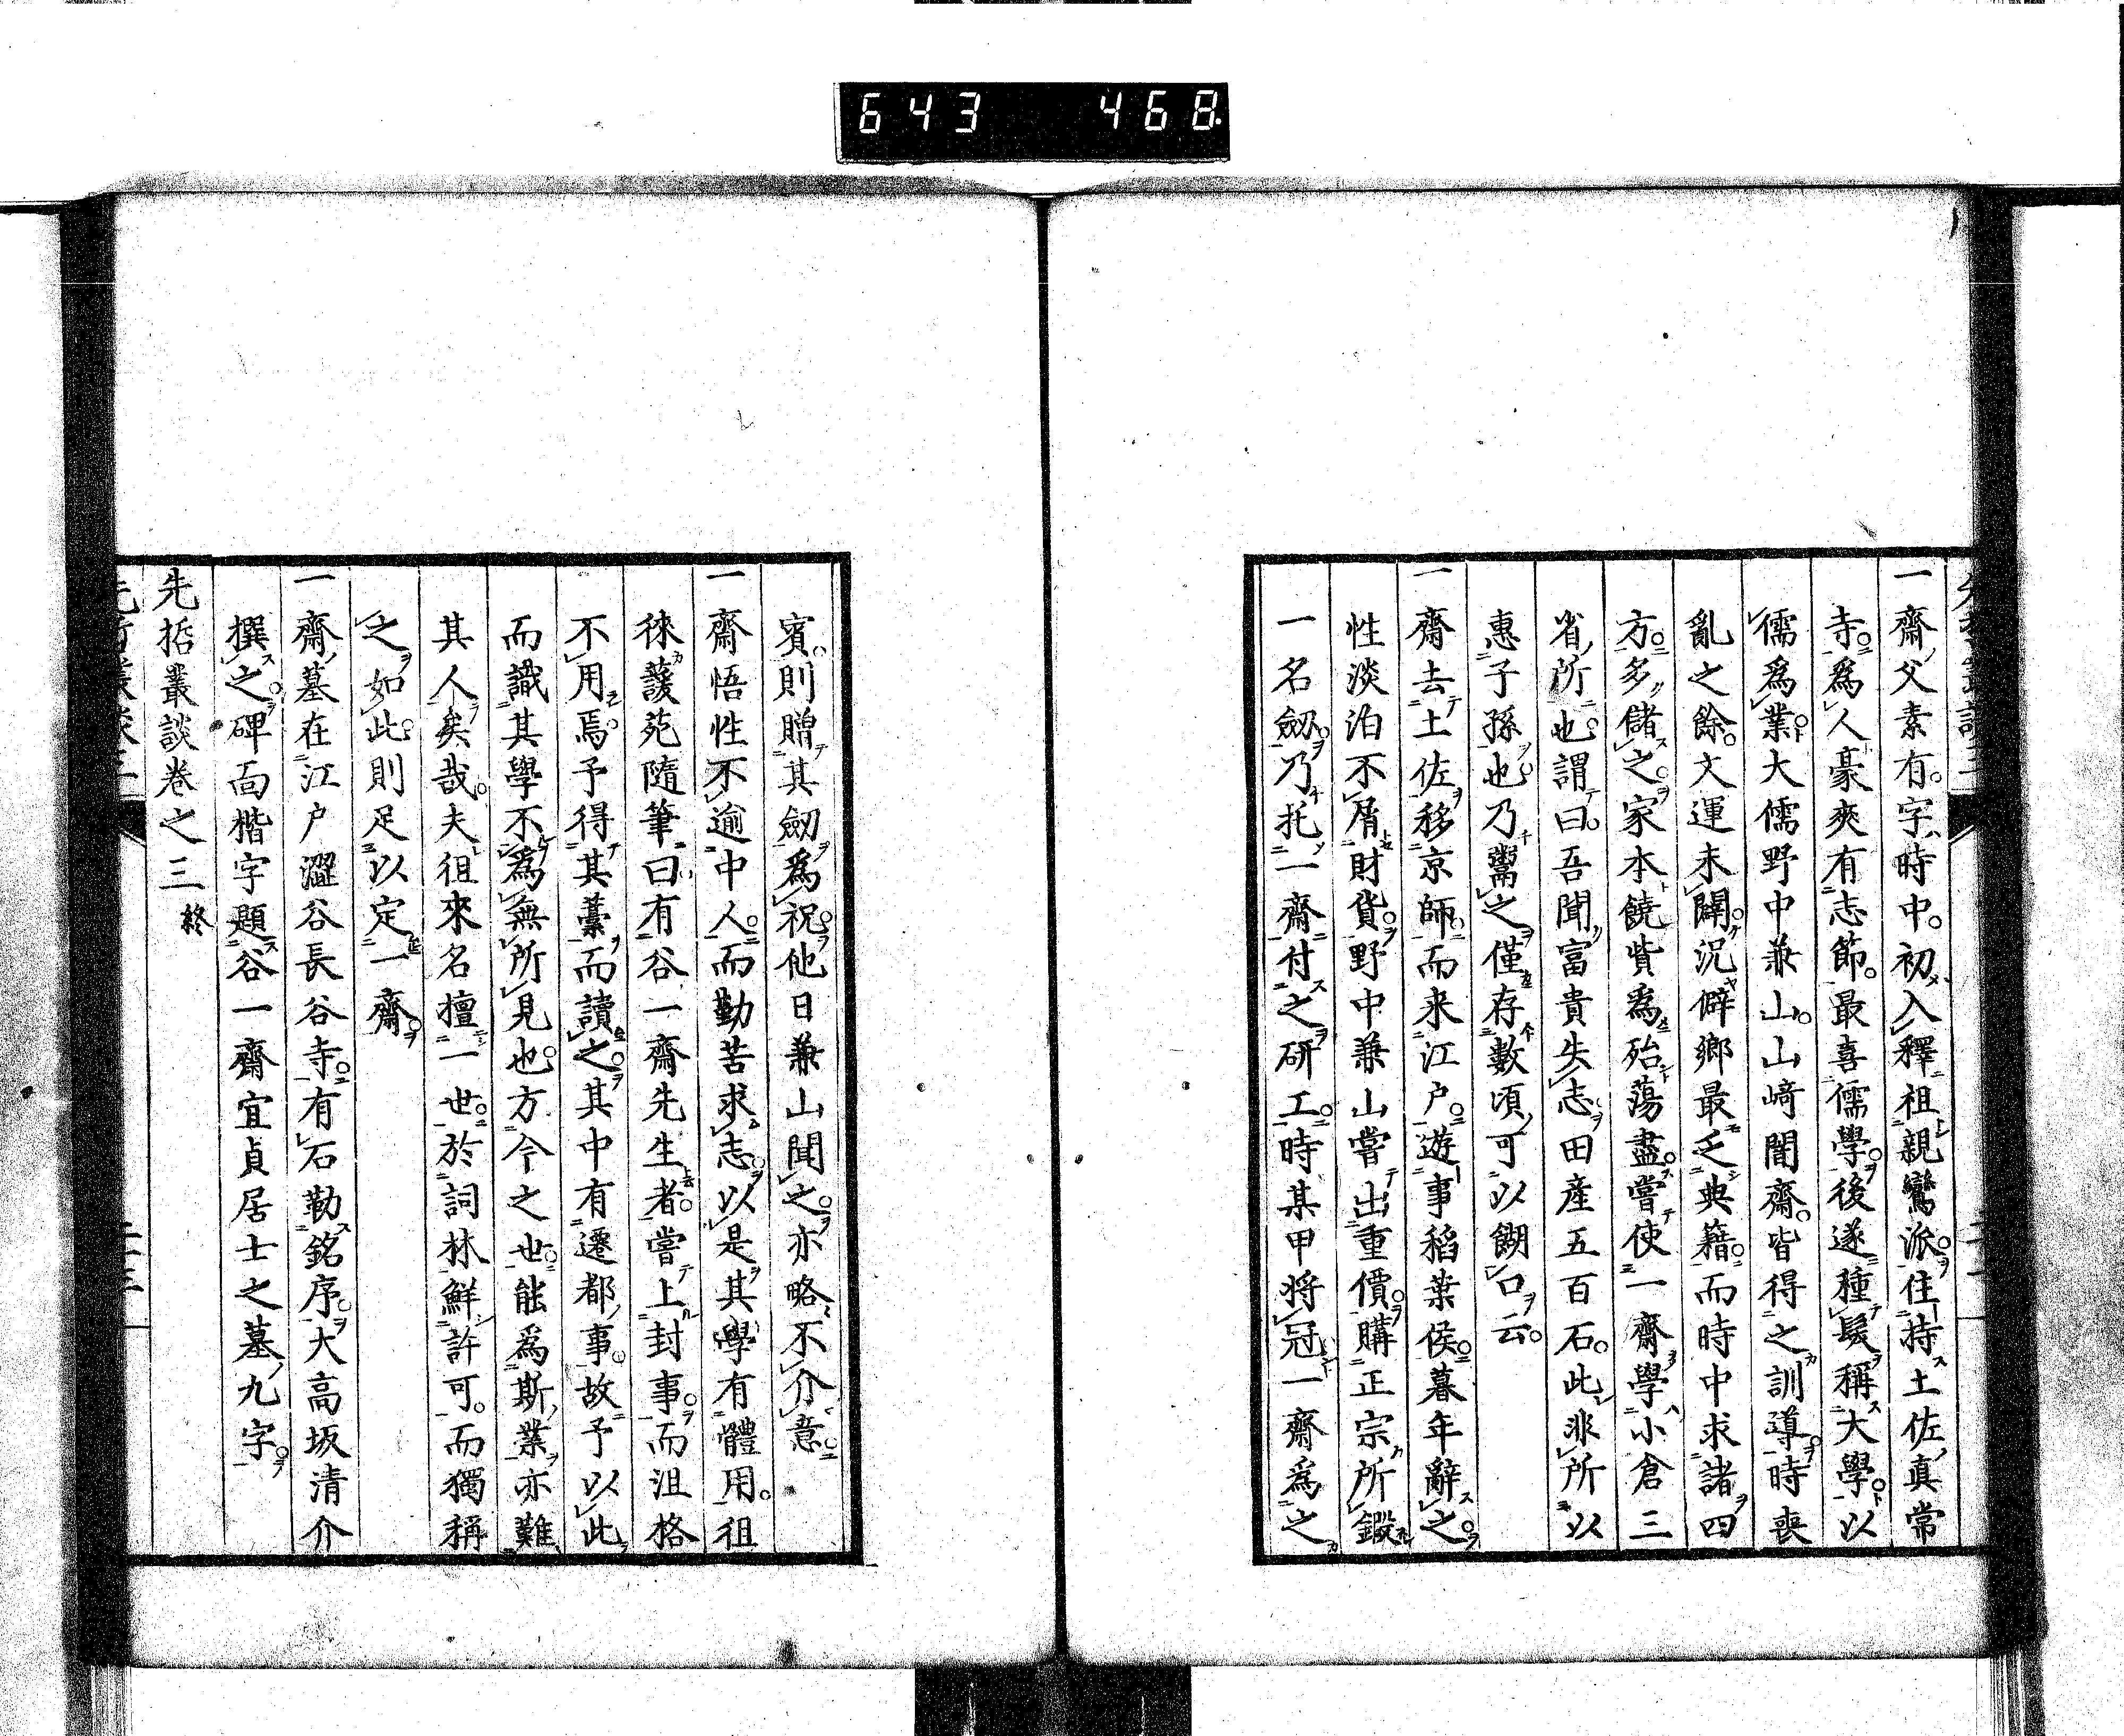 643 468
一齋父素有字時中初入釋祖親鸞派住持土佐真常
寺爲人豪爽有志節最喜儒學後遂種髮稱大學以
儒爲業大儒野中兼山山﨑闇齋皆得之訓導時喪
亂之餘文運未闢況僻鄉最乏典籍而時中求諸四
方多儲之家本饒貲爲殆蕩盡嘗使一齋學小倉三
省所也謂曰吾聞富貴失志田産五百石此非所以
惠子孫也乃鬻之僅存數頃可以餬口云
一齋去土佐移京師而来江户遊事稻葉侯暮年辭之
性淡泊不屑財貨野中兼山嘗出重價購正宗所鍛
一名劔乃托一齋付之研工時某甲将冠一齋爲之
賓則贈其劔爲祝他日兼山聞之亦略不介意
一齋悟性不逾中人而勤苦求志以是其學有體用徂
徠蘐苑隨筆曰有谷一齋先生者嘗上封事而沮格
不用焉予得其藁而讀之其中有遷都事故予以此
而識其學不爲無所見也方今之世能爲斯業亦難
其人矣哉夫徂來名擅一世於詞林鮮許可而獨稱
之如此則足以定一齋
一齋墓在江户澀谷長谷寺有石勒銘序大高坂清介
撰之碑面楷字題谷一齋宜貞居士之墓九字
先哲叢談卷之三終